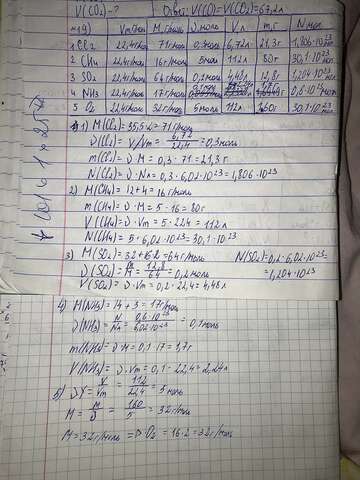 V(CO₂)-?
Ответ: V(CO)=V(CO₂)=67,2л
№19) Vm г/моль M, г/моль ν, моль V, л m, г N мол.
1 Cl₂ 22,4г/моль 71г/моль 0,3моль 6,72л 21,3г 1,806·10²³ мол
2 CH₄ 22,4г/моль 16г/моль 5моль 112л 80г 30,1·10²³ мол
3 SO₂ 22,4г/моль 64г/моль 0,2моль 4,48л 12,8г 1,204·10²³ мол
4 NH₃ 22,4г/моль 17г/моль 0,6·10²³ мол
5 O₂ 22,4г/моль 32г/моль 5моль 112л 160г 30,1·10²³ мол
1) M(Cl₂)=35,5·2=71г/моль
ν(Cl₂)=V/Vm=6,72/22,4=0,3моль
m(Cl₂)=ν·M=0,3·71=21,3г
N(Cl₂)=ν·Nа=0,3·6,02·10²³=1,806·10²³
2) M(CH₄)=12+4=16г/моль
m(CH₄)=ν·M=5·16=80г
V(CH₄)=ν·Vm=5·22,4=112л
N(CH₄)=5·6,02·10²³=30,1·10²³
3) M(SO₂)=32+16·2=64г/моль
N(SO₂)=0,2·6,02·10²³=
ν(SO₂)=m/M=12,8/64=0,2моль
=1,204·10²³
V(SO₂)=ν·Vm=0,2·22,4=4,48л
4) M(NH₃)=14+3=17г/моль
ν(NH₃)=N/Nа=0,6·10²³/6,02·10²³=0,1моль
m(NH₃)=ν·M=0,1·17=1,7г
V(NH₃)=ν·Vm=0,1·22,4=2,24л
5) νY=V/Vm=112/22,4=5моль
M=m/ν=160/5=32г/моль
M=32г/моль=>O₂=16·2=32г/моль